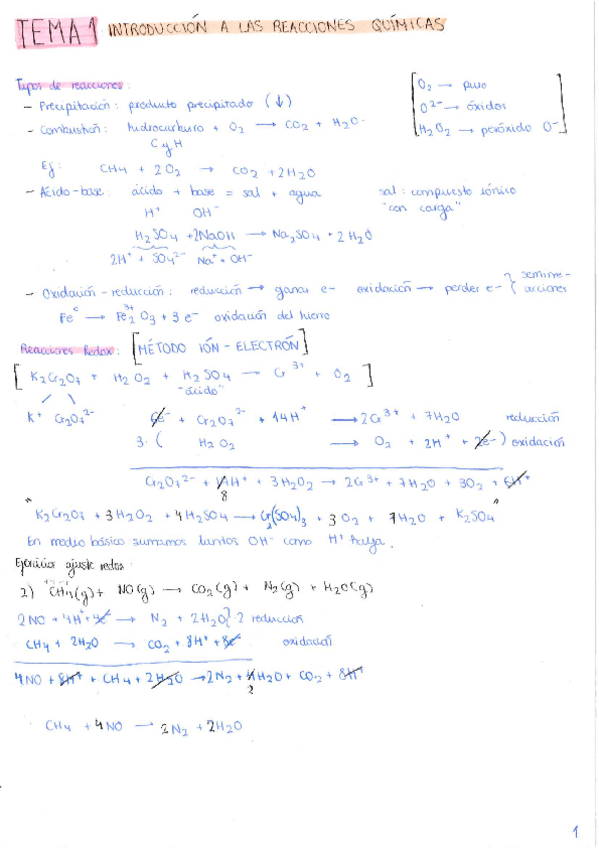 TEMA 1 INTRODUCCIÓN A LAS REACCIONES QUÍMICAS
Tipos de reacciones:
- Precipitación: producto precipitado (↓)
- Combustión: hidrocarburo + O₂ → CO₂ + H₂O
C y H
Ej: CH₄ + 2O₂ → CO₂ + 2H₂O
O₂ → puro
O²⁻ → óxidos
H₂O₂ → peróxido O⁻
- Ácido-base: ácido + base = sal + agua
sal: compuesto iónico
H⁺ OH⁻
"con carga"
H₂SO₄ + 2NaOH → Na₂SO₄ + 2H₂O
2H⁺ + SO₄²⁻ Na⁺ + OH⁻
- Oxidación-reducción: reducción → ganar e- oxidación → perder e- { semirre-
acciones
Fe⁰ → Fe₂³⁺O₃ + 3e⁻ oxidación del hierro
Reacciones Redox: [MÉTODO IÓN-ELECTRÓN]
[K₂Cr₂O₇ + H₂O₂ + H₂SO₄ → Cr³⁺ + O₂]
"ácido"
K⁺ Cr₂O₇²⁻
6e⁻ + Cr₂O₇²⁻ + 14H⁺ → 2Cr³⁺ + 7H₂O reducción
3·( H₂O₂ → O₂ + 2H⁺ + 2e⁻) oxidación
Cr₂O₇²⁻ + 14H⁺ + 3H₂O₂ → 2Cr³⁺ + 7H₂O + 3O₂ + 6H⁺
8
"K₂Cr₂O₇ + 3H₂O₂ + 4H₂SO₄ → Cr₂(SO₄)₃ + 3O₂ + 7H₂O + K₂SO₄"
En medio básico sumamos tantos OH⁻ como H⁺ haya.
Ejercicios ajuste redox:
2) CH₄(g) + NO(g) → CO₂(g) + N₂(g) + H₂O(g)
2NO + 4H⁺ + 4e⁻ → N₂ + 2H₂O}·2 reducción
CH₄ + 2H₂O → CO₂ + 8H⁺ + 8e⁻ oxidación
4NO + 8H⁺ + CH₄ + 2H₂O → 2N₂ + 4H₂O + CO₂ + 8H⁺
2
CH₄ + 4NO → 2N₂ + 2H₂O
1